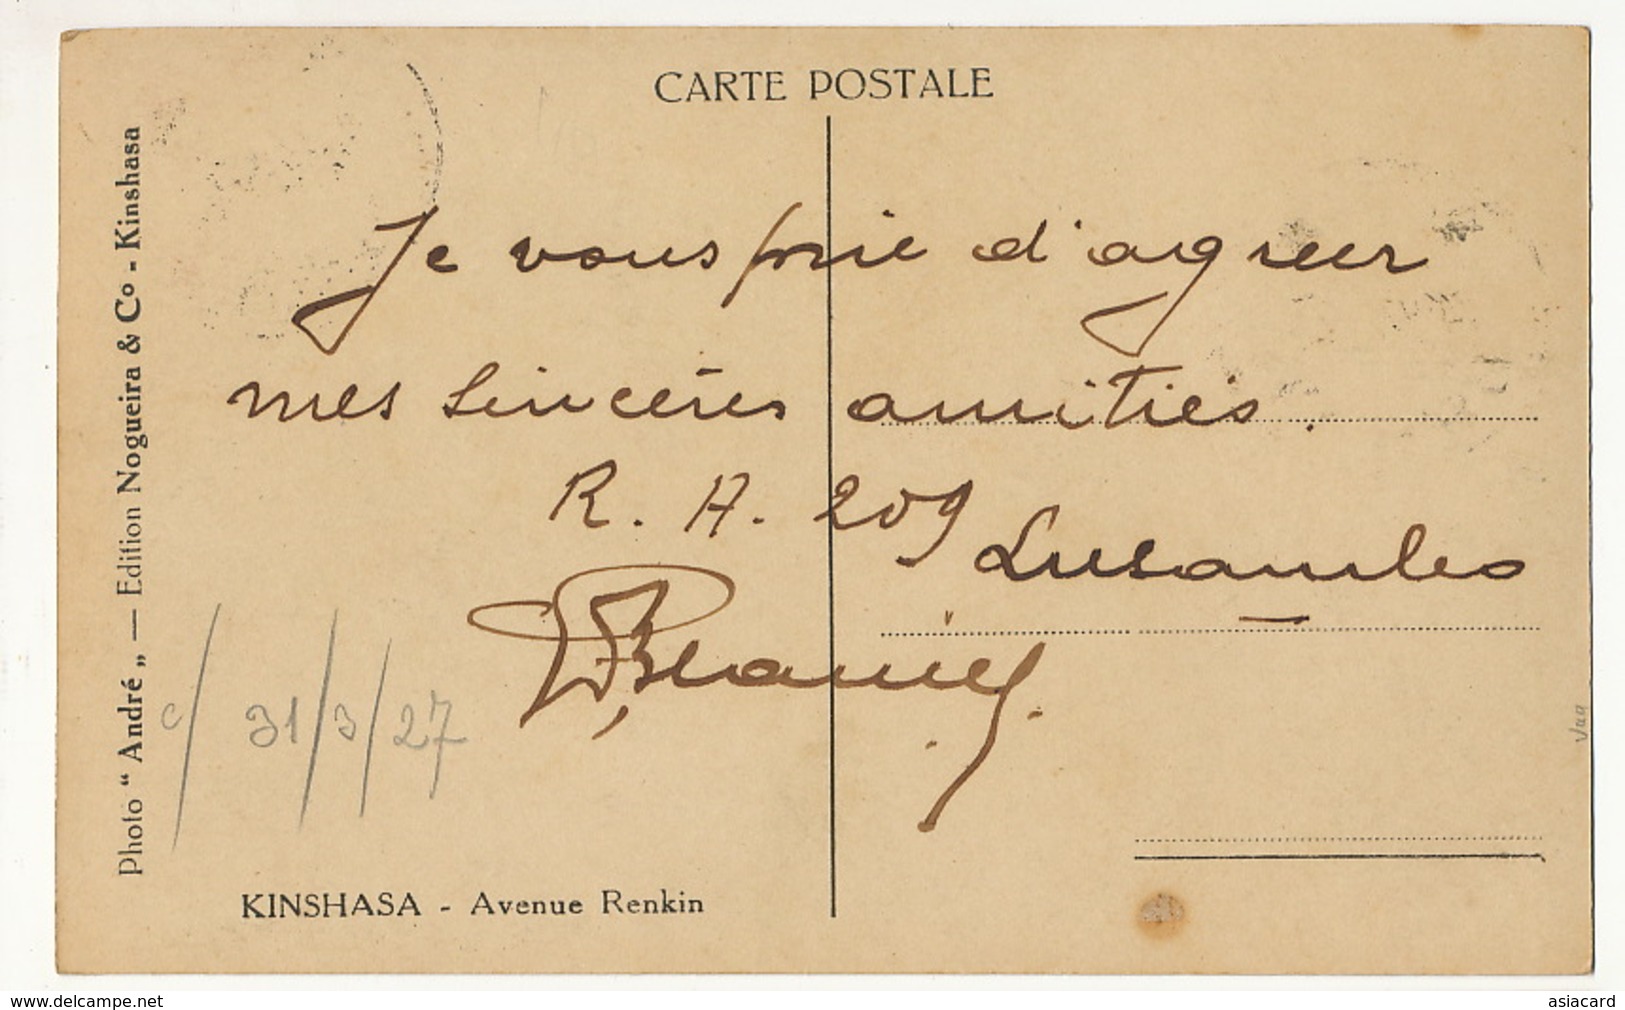 CARTE POSTALE
Photo “ André „ — Edition Nogueira & Co - Kinshasa
Je vous prie d'agreer
mes sincères amitiés.
R. A. 209 Lusambo
c/ 31/3/27
KINSHASA - Avenue Renkin
www.delcampe.net
asiacard